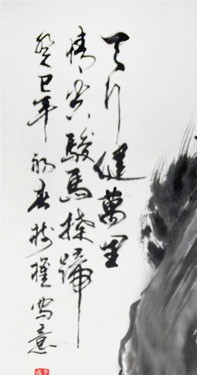 天行健萬里
情寄駿馬蹄
癸巳年初春樹權寫意